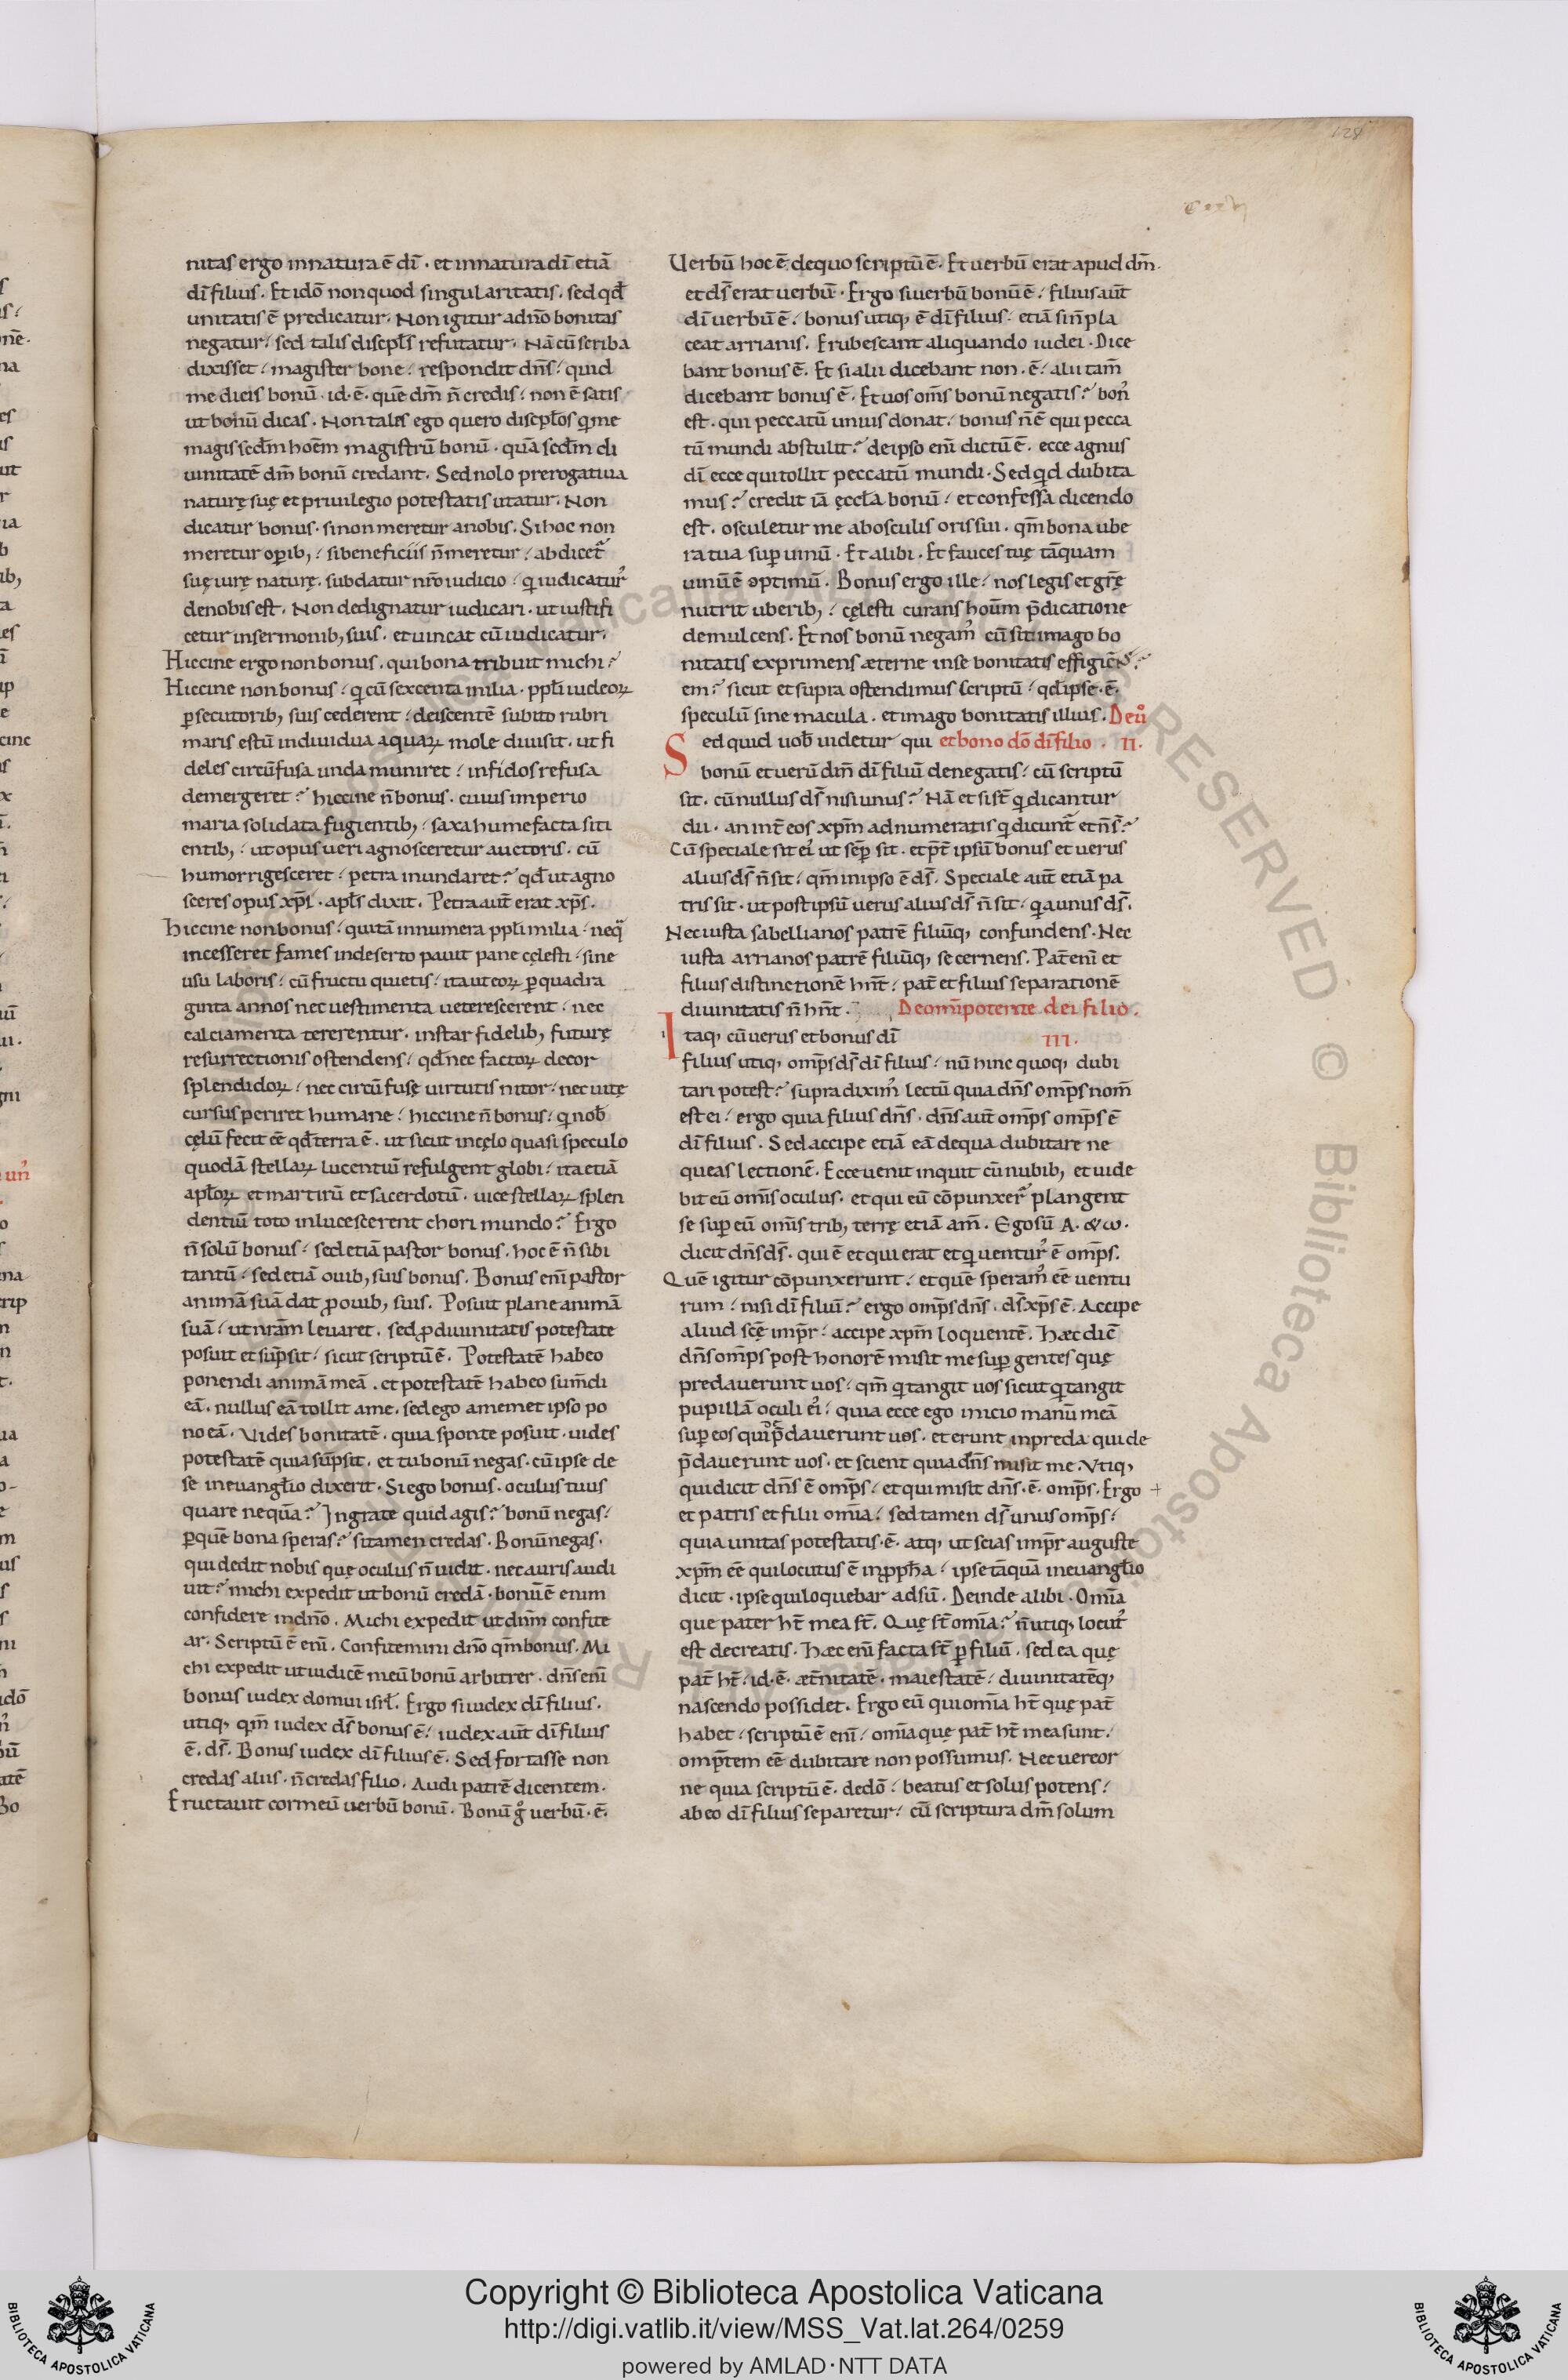 128
nitas ergo innatura ē dī · et innatura dī etiā
dī filius. Et idō non quod singularitatis. sed qđ
unitatis ē predicatur. Non igitur ad nō bonitas
negatur / sed talis discipłs refutatur. Nā cū scriba
dixisset / magister bone / respondit dn̄s / quid
me dicis bonū · id · ē · quē dm̄ n̄ credis / non ē satis
ut bonū dicas. Non tales ego quero discpłos q̇ me
magis scđm hoēm magistrū bonū · quā scđm di
uinitatē dm̄ bonū credant. Sed nolo prerogatiua
naturę suę et priuilegio potestatis utatur. Non
dicatur bonus · si non meretur a nobis. Si hoc non
meretur op̄ib; / si beneficiis n̄ meretur / abdicet᷑
suę iurę naturę. subdatur nr̄o iudicio / q̇ iudicatur᷒
de nobis est. Non dedignatur iudicari · ut iustifi
cetur in sermonib; suis · et uincat cū iudicatur.
Hiccine ergo non bonus · qui bona tribuit michi?
Hiccine non bonus / q̇ cū sexcenta milia · ppłi iudeoꝝ
ꝑsecutorib; suis cederent / deiscentē subito rubri
maris estū indiuidua aquaꝝ mole diuisit · ut fi
deles circūfusa unda muniret / infidos refusa
demergeret? hiccine n̄ bonus · cuius imperio
maria solidata fugientib; / saxa humefacta siti
entib; / ut opus ueri agnosceretur auctoris · cū
humor rigesceret / petra inundaret? qđ ut agno
sceres opus xp̄i · apłs dixit. Petra aut̄ erat xp̄s.
hiccine non bonus / qui tā innumera ppłi milia / neq̈
incesseret fames in deserto pauit pane cęlesti / sine
usu laboris / cū fructu quietis / ita ut eoꝝ ꝑ quadra
ginta annos nec uestimenta ueterescerent / nec
calciamenta tererentur · instar fidelib; futurę
resurrectionis ostendens / qđ nec factoꝝ decor
splendidoꝝ / nec circūfusę uirtutis nitor / nec uitę
cursus periret humane / hiccine n̄ bonus / q̇ nob̄
cęlū fecit eē qđ terra ē · ut sicut in cęlo quasi speculo
quodā stellaꝝ lucentiū refulgent globi / ita etiā
apłoꝝ et martirū et sacerdotū · uice stellaꝝ splen
dentiū toto inlucescerent chori mundo? Ergo
n̄ solū bonus / sed etiā pastor bonus · hoc ē n̄ sibi
tantū / sed etiā ouib; suis bonus. Bonus enī pastor
animā suā dat ꝓ ouib; suis. Posuit plane animā
suā / ut nrām leuaret. sed ꝓ diuinitatis potestate
posuit et sūpsit / sicut scriptū ē. Potestatē habeo
ponendi animā meā · et potestatē habeo sum̄di
eā · nullus eā tollit a me · sed ego a memet ipso po
no eā. Vides bonitatē · quia sponte posuit · uides
potestatē quia sūpsit · et tu bonū negas · cū ipse de
se in euanglio dixerit. Si ego bonus · oculus tuus
quare nequā? Ingrate quid agis? bonū negas /
ꝑ quē bona speras? si tamen credas. Bonū negas ·
qui dedit nobis quę oculus n̄ uidit · nec auris audi
uit? michi expedit ut bonū credā · bonū ē enim
confidere in dn̄o. Michi expedit ut dn̄m confite
ar. Scriptū ē enī. Confitemini dn̄o qm̄ bonus. Mi
chi expedit ut iudicē meū bonū arbitrer · dn̄s enī
bonus iudex domui isrł. Ergo si iudex dī filius ·
utiq; qm̄ iudex ds̄ bonus ē / iudex aut̄ dī filius
ē · ds̄. Bonus iudex dī filius ē. Sed fortasse non
credas aliis · n̄ credas filio. Audi patrē dicentem.
Eructauit cor meū uerbū bonū. Bonū g̊ uerbū · ē ·
Uerbū hoc ē de quo scriptū ē. Et uerbū erat apud dm̄ ·
et ds̄ erat uerbū. Ergo si uerbū bonū ē / filius aut̄
dī uerbū ē / bonus utiq; ē dī filius / etiā si n̄ pla
ceat arrianis. Erubescant aliquando iudei. Dice
bant bonus ē. Et si alii dicebant non · ē / alii tam̄
dicebant bonus ē. Et uos om̄s bonū negatis? bon᷒
est · qui peccatū unius donat / bonus n̄ ē qui pecca
tū mundi abstulit? de ipso enī dictū ē. ecce agnus
dī ecce qui tollit peccatū mundi. Sed qd dubita
mus? credit iā ęccła bonū / et confessa dicendo
est. osculetur me ab osculis oris sui · qm̄ bona ube
ra tua sup̄ uinū. Et alibi. Et fauces tuę tāquam
uinū ē optimū. Bonus ergo ille / nos legis et gr̄ę
nutrit uberib; / cęlesti curans hoūm p̄dicatione
demulcens. Et nos bonū negam᷒ cū sit imago bo
nitatis exprimens æterne in se bonitatis effigiē
em? sicut et supra ostendimus scriptū / qđ ipse · ē ·
speculū sine macula · et imago bonitatis illius. De ū̊
Sed quid uob̄ uidetur qui et bono dō dī filio · II ·
bonū et uerū dm̄ dī filiū denegatis / cū scriptū
sit · cū nullus ds̄ nisi unus? Nā et si st̄ q̇ dicantur
dii · an int̄ eos xp̄m adnumeratis q̇ dicunt᷑ et n̄ s̄t?
Cū speciale sit ei᷒ ut sēp sit · et p̄t̄ ipsū bonus et uerus
alius ds̄ n̄ sit / qm̄ in ipso ē ds̄. Speciale aut̄ etiā pa
tris sit · ut post ipsū uerus alius ds̄ n̄ sit / q̇a unus ds̄.
Nec iusta sabellianos patrē filiūq; confundens. Nec
iusta arrianos patrē filiūq; secernens. Pat̄ enī et
filius distinctionē hn̄t / pat̄ et filius separationē
diuinitatis n̄ hn̄t. De omīpotente dei filio.
Itaq; cū uerus et bonus dī III.
filius utiq; omp̄s ds̄ dī filius / nū hinc quoq; dubi
tari potest? supra dixim᷒ lectū quia dn̄s omp̄s nom̄
est ei / ergo quia filius dn̄s · dn̄s aut̄ omp̄s omp̄s ē
dī filius. Sed accipe etiā eā de qua dubitare ne
queas lectionē. Ecce uenit inquit cū nubib; et uide
bit eū omīs oculus · et qui eū cōpunxer᷑ plangent
se sup̄ eū om̄s trib; terrę etiā am̄. Ego sū A · & ω ·
dicit dn̄s ds̄ · qui ē et qui erat et q̇ uentur᷒ ē omp̄s.
Quē igitur cōpunxerunt / et quē speram᷒ eē uentu
rum / nisi dī filiū? ergo omp̄s dn̄s · ds̄ xp̄s ē. Accipe
aliud scē imp̄r / accipe xp̄m loquentē. Hæc dic̄
dn̄s omp̄s post honorē misit me sup̄ gentes quę
predauerunt uos / qm̄ q̇ tangit uos sicut q̇ tangit
pupillā oculi ei᷒ / quia ecce ego inicio manū meā
sup̄ eos qui p̄dauerunt uos · et erunt in preda qui de
p̄dauerunt uos · et scient quia dn̄s misit me. Vtiq;
qui dicit dn̄s ē omp̄s / et qui misit dn̄s · ē · omp̄s. Ergo +
et patris et filii omīa / sed tamen ds̄ unus omp̄s /
quia unitas potestatis · ē · atq; ut scias imp̄r auguste
xp̄m eē qui locutus ē in ppħa / ipse tāquā in euanglio
dicit · ipse qui loquebar adsū. Deinde alibi. Omīa
que pater ht̄ mea st̄. Quę st̄ omīa? n̄ utiq; locut᷒
est de creatis. Hæc enī facta st̄ ꝑ filiū · sed ea quę
pat̄ ht̄ / id · ē · æt̄nitatē · maiestatē / diuinitatēq;
nascendo possidet. Ergo eū qui omīa ht̄ quę pat̄
habet / scriptū ē enī / omīa quę pat̄ ht̄ mea sunt /
omp̄tem eē dubitare non possumus. Nec uereor
ne quia scriptū ē · de dō / beatus et solus potens /
ab eo dī filius separetur / cū scriptura dm̄ solum
Copyright © Biblioteca Apostolica Vaticana
http://digi.vatlib.it/view/MSS_Vat.lat.264/0259
powered by AMLAD·NTT DATA
BIBLIOTECA APOSTOLICA VATICANA
BIBLIOTECA APOSTOLICA VATICANA